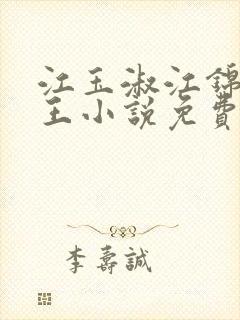 江玉淑江錦
王小說免費
李壽誠